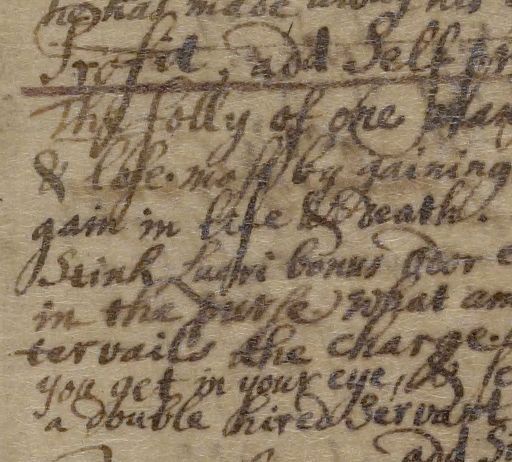 he had made away his
Profit, add Self
The folly of one
& lose most by gaining
gain in life & Death.
Stink Lucri bonus Odor e
in the purse what am
tervails the charge.
you get in your eye, & se
a double hired Servant
add Si